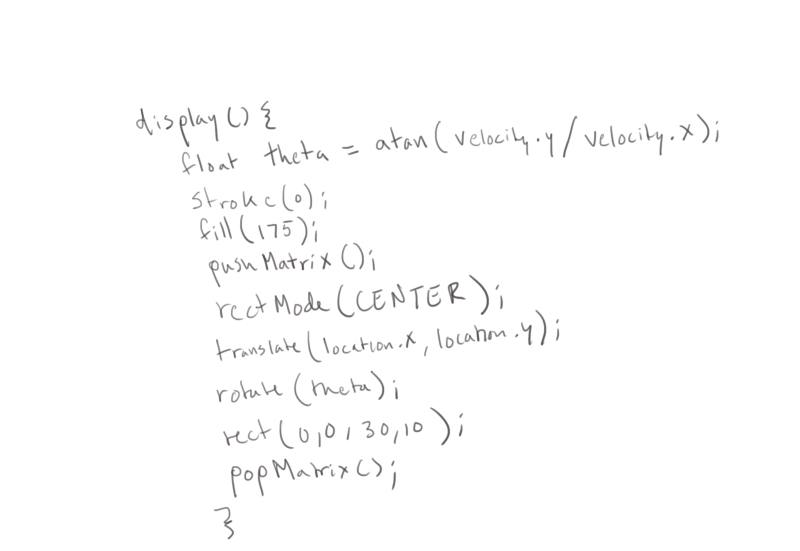 display() {
float theta = atan(velocity.y/velocity.x);
stroke(0);
fill(175);
pushMatrix();
rectMode(CENTER);
translate(location.x, location.y);
rotate(theta);
rect(0,0,30,10);
popMatrix();
}